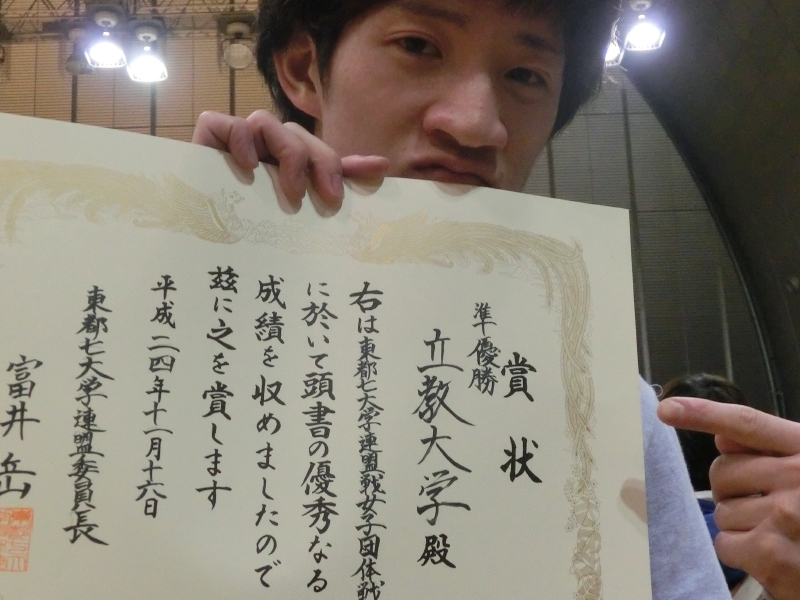 賞状
準優勝
立教大学殿
右は東都七大学連盟戦女子団体戦
に於いて頭書の優秀なる
成績を収めましたので
茲に之を賞します
平成二四年十一月十六日
東都七大学連盟委員長
富井岳